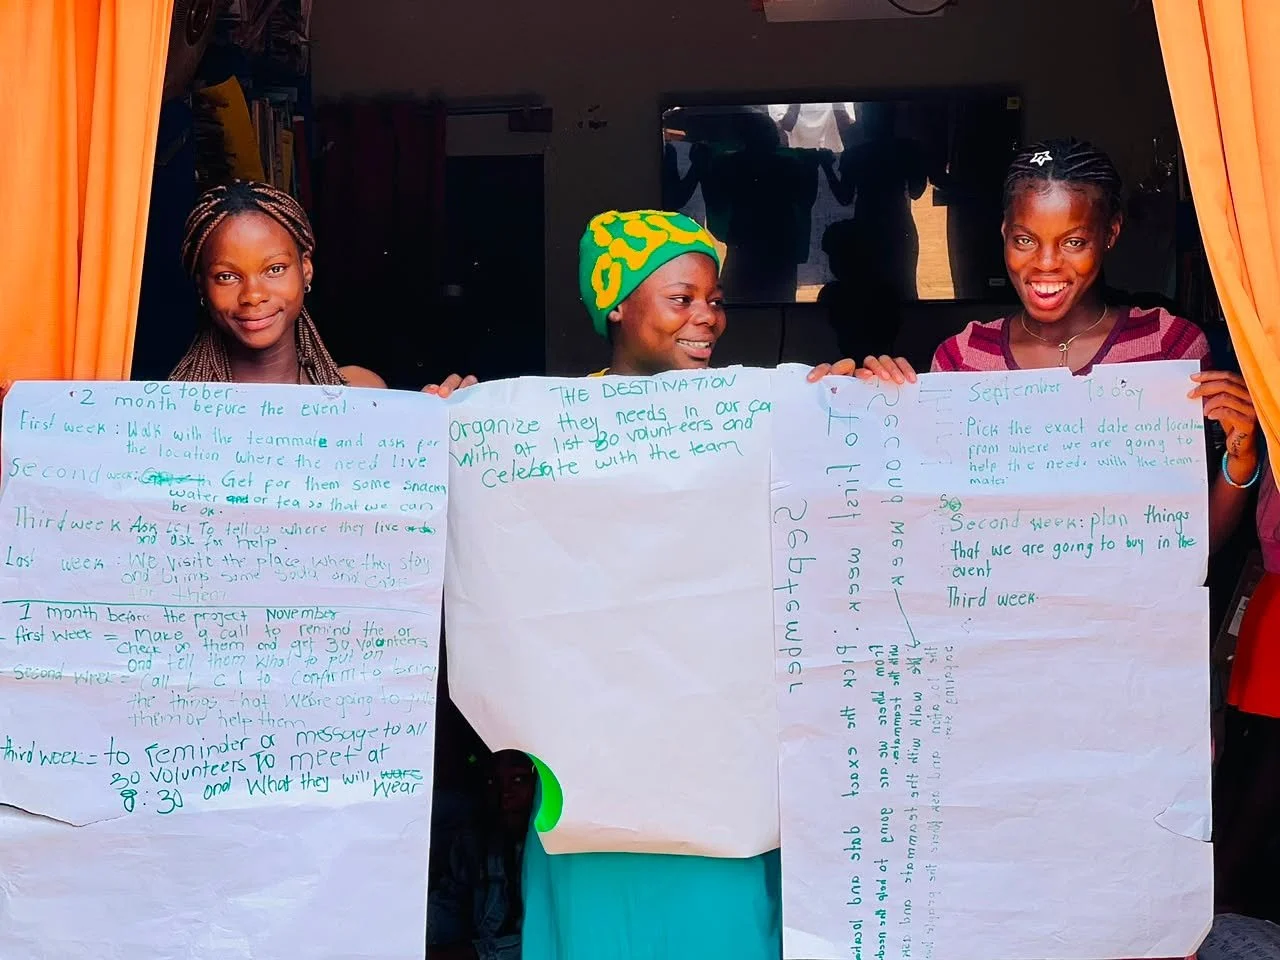 October
2 month before the event.
First week: Walk with the teammate and ask for
the location where the need live
Second week: Get for them some snacks
water and or tea so that we can
be ok.
Third week Ask LC1 To tell us where they live
and ask for help.
Last week: We visite the place where they stay
and brings some and
for them
1 month before the project November
- first week = Make a call to remind the or
check on them and get 30 volunteers
and tell them what to put on
- Second week = Call LC1 to confirm to bring
the things that we're going to
them or help them
Third week = to reminder a message to all
30 volunteers To meet at
8:30 and What they will Wear
THE DESTINATION
organize they needs in our
With at list 30 volunteers and
celebrate with the team
September Today
Pick the exact date and location
from where we are going to
help the needs with the team-
mates
Second week: plan things
that we are going to buy in the
event
Third week.
September
To first week. Pick the exact date and
from where we are going to help the
with the teammate.
Second week
We walk with the teammate and ask
the location and ask